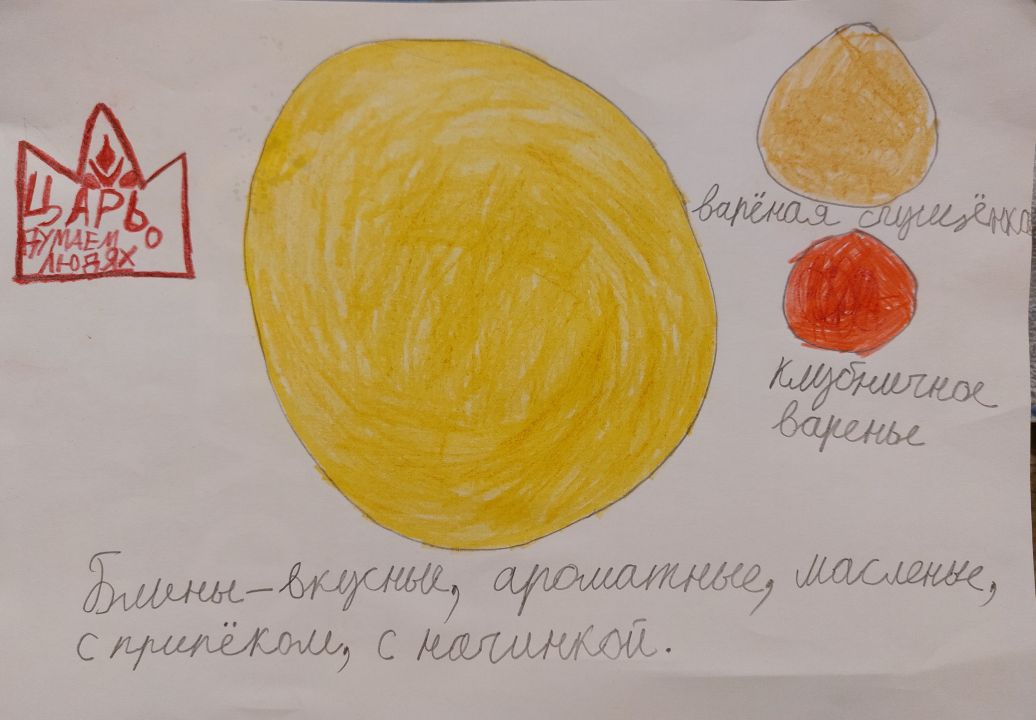 ЦАРЬ
ДУМАЕМ О
ЛЮДЯХ
варёная сгущёнка
клубничное
варенье
Блины - вкусные, ароматные, масленые,
с припёком, с начинкой.